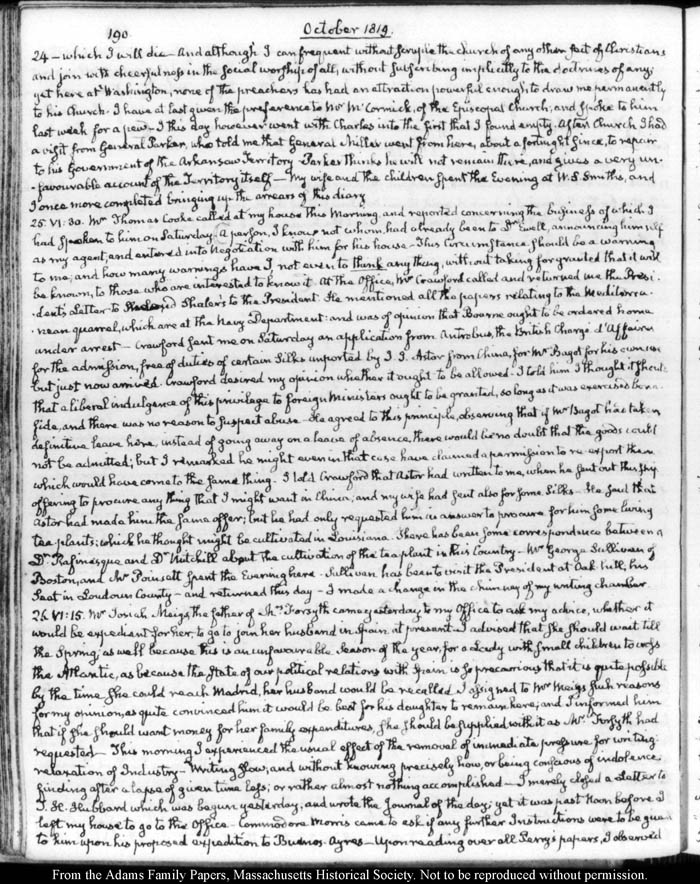 190
October 1819.
24 — which I will die — And although I can frequent without scruple the church of any other sect of Christians
and join with cheerfulness in the social worship of all, without subscribing implicitly to the doctrines of any;
yet here at Washington, none of the preachers has had an attraction powerful enough, to draw me permanently
to his Church. I have at last given the preference to Mr McCormick, of the Episcopal Church, and spoke to him
last week for a pew. I this day however went with Charles into the first that I found empty. After Church I had
a visit from General Parker, who told me that General Miller went from here, about a fortnight since, to repair
to his Government of the Arkansaw Territory. Parker thinks he will not remain there, and gives a very un-
-favourable account of the Territory itself — My wife and the children spent the Evening at W. S. Smith's, and
I once more completed bringing up the arrears of this diary.
25. VI:30. Mr Thomas Cooke called at my house this Morning, and reported concerning the business of which I
had spoken to him on Saturday. A person, I know not whom, had already been to Dr Ewell, announcing himself
as my agent, and entered into negotiation with him for his house. This Circumstance should be a warning
to me, and how many warnings have I not even to think any thing, without taking for granted that it will
be known, to those who are interested to know it. At the Office, Mr Crawford called and returned me the Presi-
-dent's Letter to Shaler's to the President. He mentioned all the papers relating to the Mediterra-
-nean quarrel, which are at the Navy Department: and was of opinion that Bourne ought to be ordered home
under arrest — Crawford sent me on Saturday an application from Antrobus, the British Chargé d'Affaires
for the admission, free of duties of certain Silks imported by J. J. Astor from China, for Mr Bagot for his own use
but just now arrived. Crawford desired my opinion whether it ought to be allowed. I told him I thought it should
that a liberal indulgence of this privilege to foreign Ministers ought to be granted, so long as it was exercised bona
fide, and there was no reason to suspect abuse. He agreed to this principle, observing that if Mr Bagot had taken
definitive leave here, instead of going away on a leave of absence, there would be no doubt that the goods could
not be admitted; but I remarked he might even in that case have claimed a permission to re-export them
which would have come to the same thing. I told Crawford that Astor had written to me, when he sent out this ship
offering to procure any thing that I might want in China, and my wife had sent also for some Silks. He said that
Astor had made him the same offer; but he had only requested him in answer to procure for him some living
tea plants; which he thought might be cultivated in Louisiana. There has been some correspondence between a
Dr Rafinesque and Dr Mitchill about the cultivation of the tea plant in this Country. Mr George Sullivan of
Boston, and Mr Poinsett spent the Evening here. Sullivan has been to visit the President at Oak hill, his
Seat in Loudoun County — and returned this day — I made a change in the chimney of my writing chamber.
26. VI:15. Mr Josiah Meigs, the father of Mrs Forsyth came yesterday to my Office to ask my advice, whether it
would be expedient for her, to go to join her husband in Spain at present. I advised that she should wait till
the Spring, as well because this is an unfavourable Season of the year, for a Lady with small children to cross
the Atlantic, as because the state of our political relations with Spain is so precarious that it is quite possible
by the time she could reach Madrid, her husband would be recalled. I assigned to Mr Meigs such reasons
for my opinion, as quite convinced him it would be best for his daughter to remain here; and I informed him
that if she should want money for her family expenditures, she should be supplied with it as Mr Forsyth had
requested — This morning I experienced the usual effect of the removal of immediate pressure for writing:
relaxation of Industry — Writing slow, and without knowing precisely how, or being conscious of indolence,
finding after a lapse of given time less, or rather almost nothing accomplished — I merely closed a Letter to
J. H. Hubbard which was begun yesterday; and wrote the Journal of the day; yet it was past Noon before I
left my house to go to the Office. Commodore Morris came to ask if any further Instructions were to be given
to him upon his proposed expedition to Buenos-Ayres — Upon reading over all Perry's papers, I observed
From the Adams Family Papers, Massachusetts Historical Society. Not to be reproduced without permission.